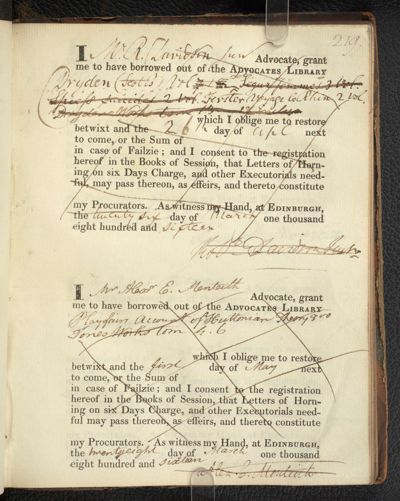 219.
I Mr R. Davidson Jun Advocate, grant
me to have borrowed out of the ADVOCATES LIBRARY
Dryden (Scotts) Vol 3 vol.
2 vol. Forster Voyage to China 2 vol.
Drydens Works tom
which I oblige me to restore
betwixt and the 26th day of Apl next
to come, or the Sum of
in case of Failzie; and I consent to the registration
hereof in the Books of Session, that Letters of Horn-
ing on six Days Charge, and other Executorials need-
ful, may pass thereon, as effeirs, and thereto constitute
my Procurators. As witness my Hand, at EDINBURGH,
the twenty six day of March one thousand
eight hundred and sixteen
Davidson Junr
I Mr Alexr E. Monteith Advocate, grant
me to have borrowed out of the ADVOCATES LIBRARY
Playfairs Account of Huttonian Theory 8vo
Jones Works tom 4. 6
which I oblige me to restore
betwixt and the first day of May next
to come, or the Sum of
in case of Failzie; and I consent to the registration
hereof in the Books of Session, that Letters of Horn-
ing on six Days Charge, and other Executorials need-
ful may pass thereon, as effeirs, and thereto constitute
my Procurators. As witness my Hand, at EDINBURGH,
the twenty eight day of March one thousand
eight hundred and sixteen
Alex. E. Monteith